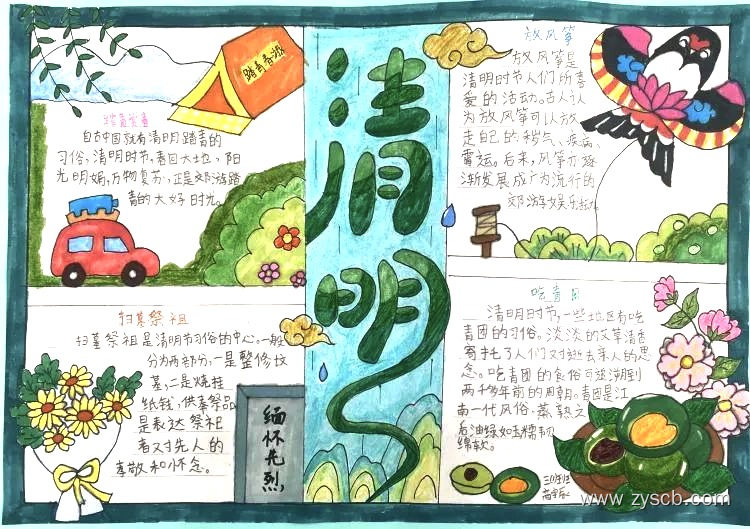 踏青春游
踏青赏春
自古中国就有清明踏青的
习俗，清明时节，春回大地，阳
光明媚，万物复苏，正是郊游踏
青的大好时光。
扫墓祭祖
扫墓祭祖是清明节习俗的中心。一般
分为两部分，一是整修坟
墓，二是烧挂
纸钱，供奉祭品
是表达祭祀
者对先人的
孝敬和怀念。
缅怀先烈
清明
放风筝
放风筝是
清明时节人们所喜
爱的活动。古人认
为放风筝可以放
走自己的秽气、疾病、
霉运。后来，风筝亦逐
渐发展成为流行的
郊游娱乐
吃青团
清明时节，一些地区有吃
青团的习俗。淡淡的艾草清香
寄托了人们对逝去亲人的思
念。吃青团的食俗可追溯到
两千多年前的周朝。青团是江
南一代风俗，蒸熟之
后油绿如玉糯韧
绵软。
www.zyscb.com